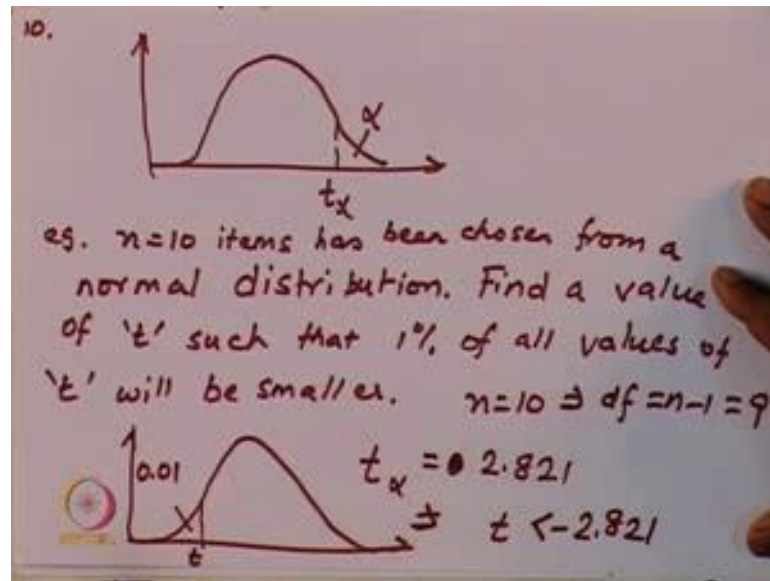 10.
α
tα
eg. n=10 items has been chosen from a
normal distribution. Find a value
of 't' such that 1% of all values of
't' will be smaller. n=10 ⇒ df = n-1 = 9
0.01
tα = 2.821
t
⇒ t < -2.821